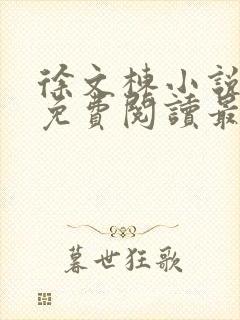 徐文棟小說
免費閱讀最
暮世狂歌